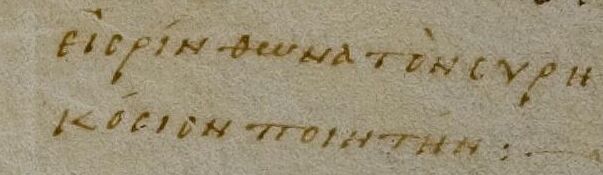 εἰσρίνθωνα τὸν συρη
κόσιον ποιητήν :